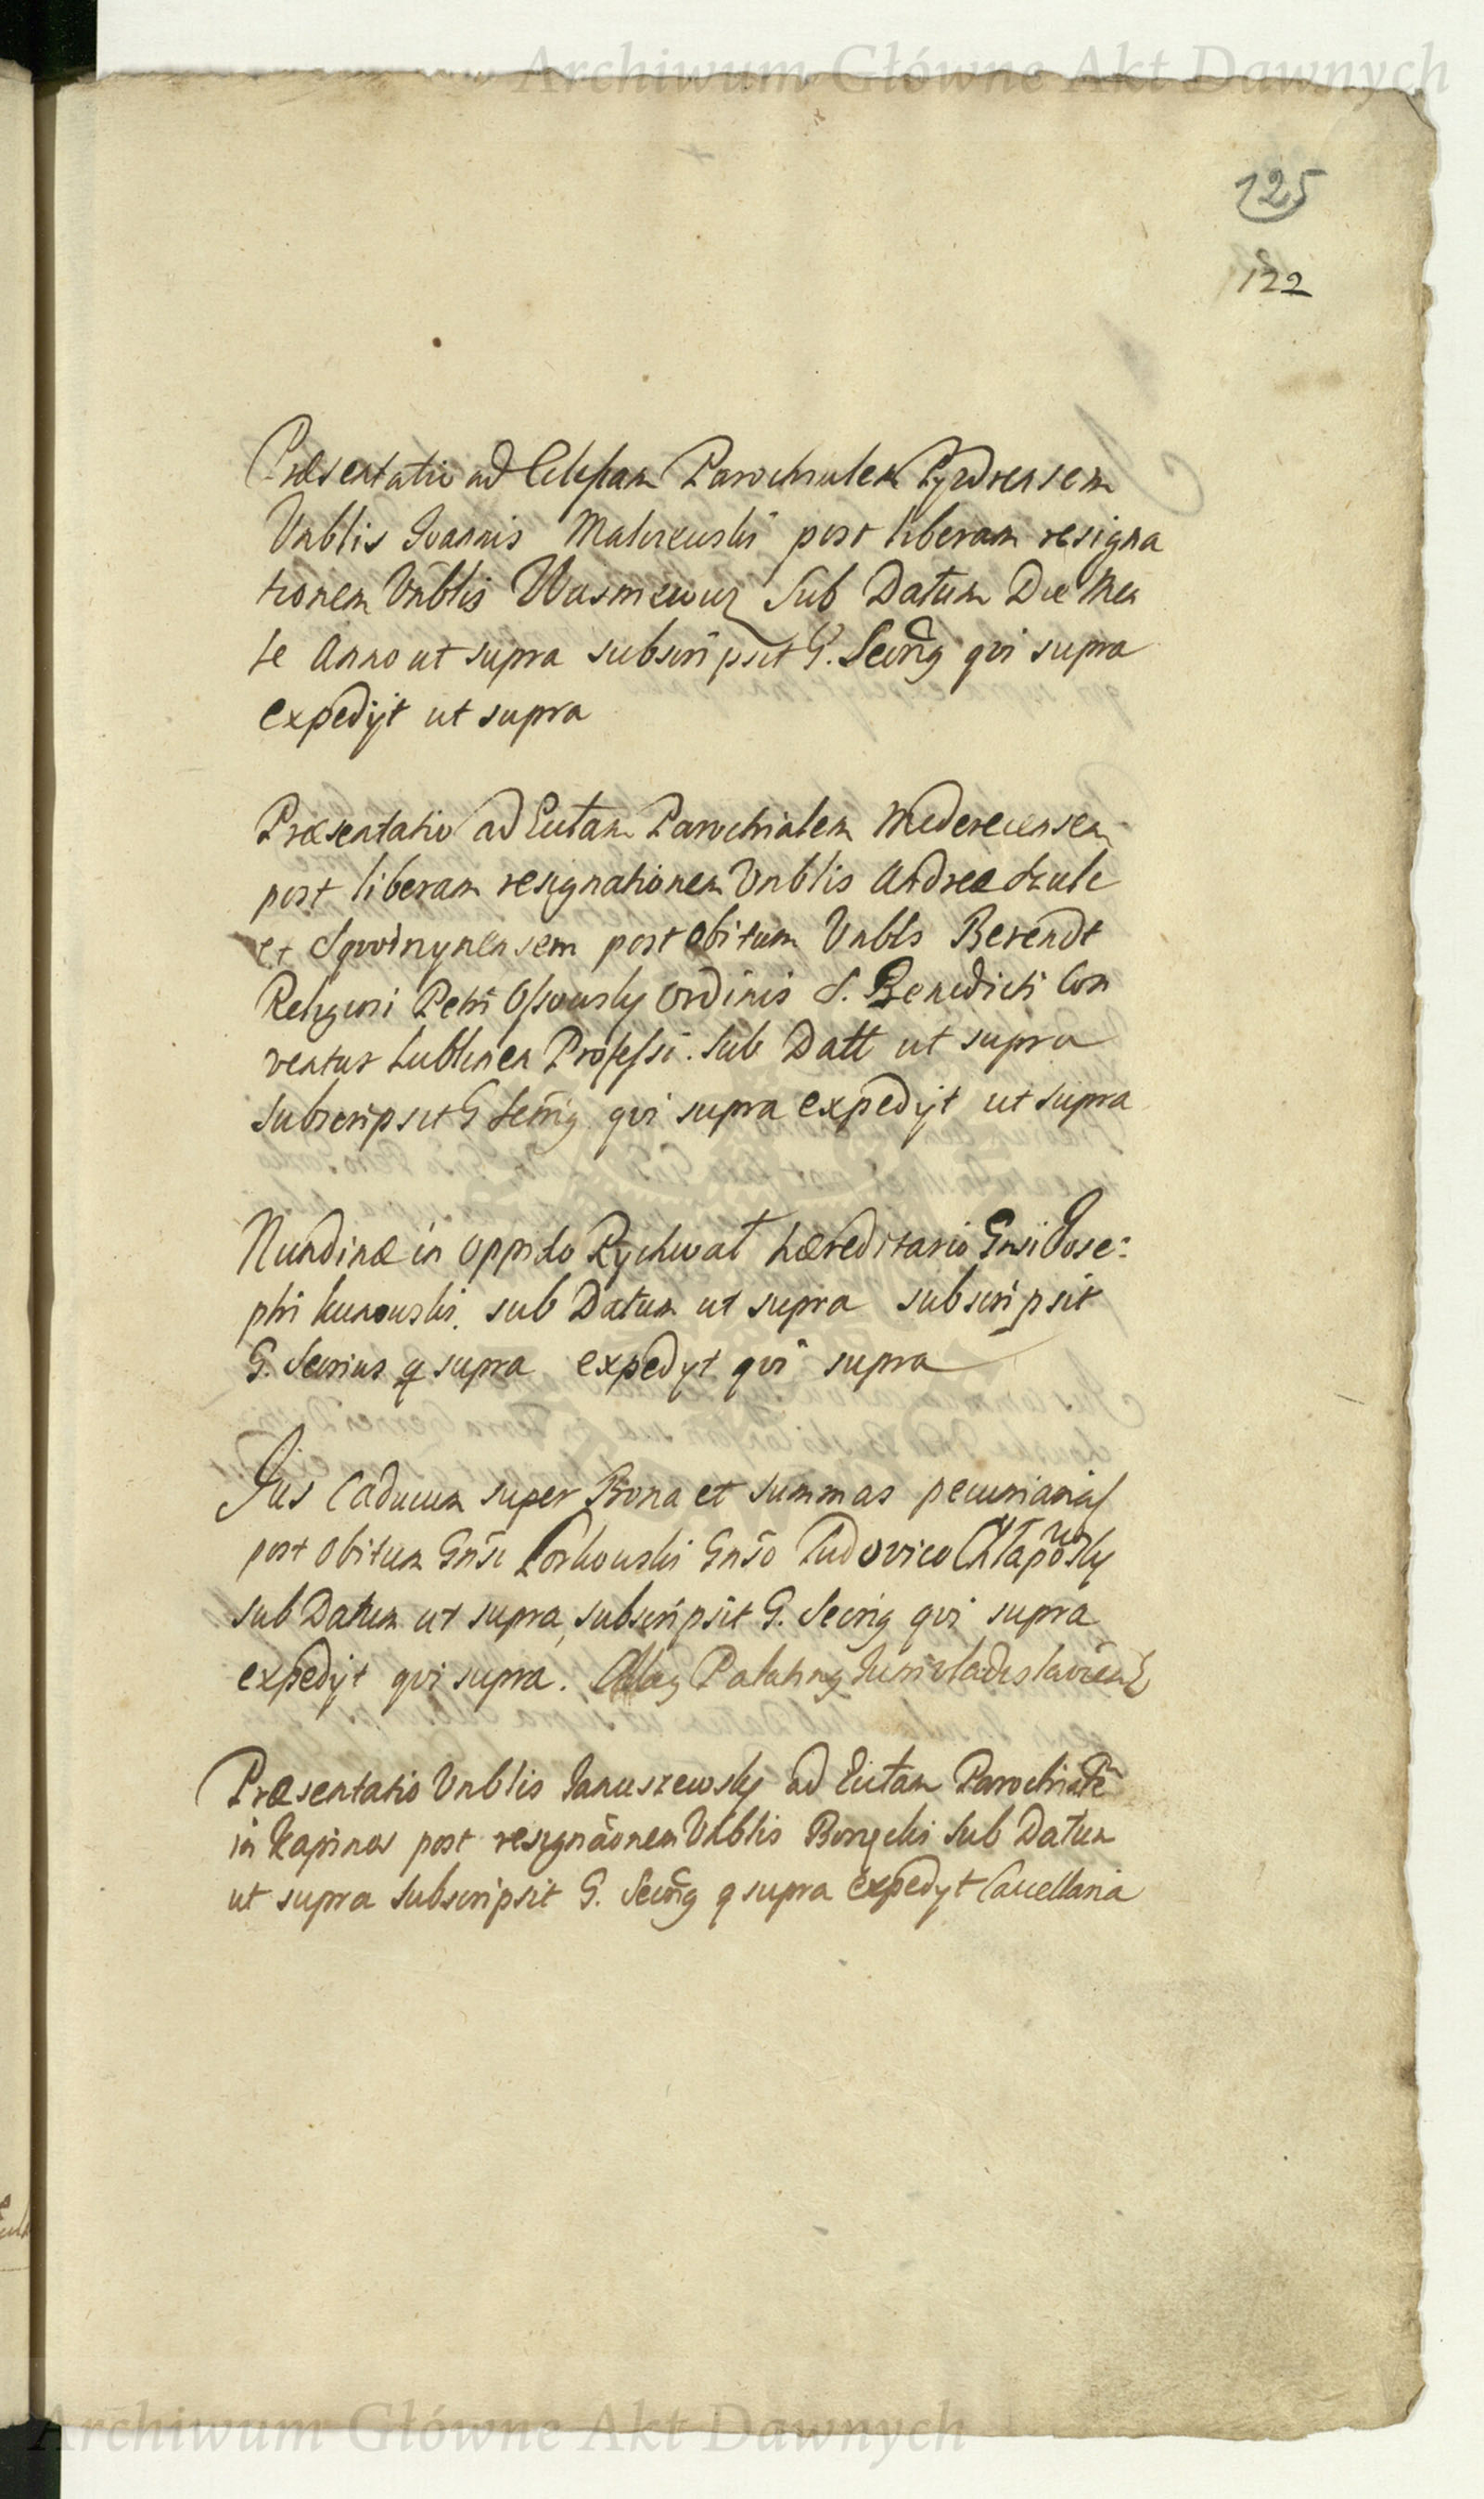 Archiwum Główne Akt Dawnych
125
122
Præsentatio ad Eccles̄iam Parochialem Pyzdrensem
Vnblis Joannis Malczewski post liberam resigna
tionem Vnblis Wasniewicz Sub Datum Die Men
se Anno ut supra subscripsit G. Secrig qvi supra
expedijt ut supra
Præsentatio ad Ecctam Parochialem Miederecensem
post liberam resignationem Vnblis Andreæ Szulc
et Sqvirzynensem post obitum Vnbls Berendt
Religiosi Petri Ossowsky Ordinis S. Benedicti Con
ventus Lublinen Professi. Sub Datt ut supra
Subscripsit G Secrig qvi supra expedijt ut supra
Nundinæ in Oppido Rychwał hæreditario Gnsi Jose:
phi Kunowski. sub Datum ut supra subscripsit
G. Secrius q supra expedyt qvi supra
Jus Caducum super Bona et summas pecuniarias
post Obitum Gnsi Gnso Ludovico Chłapowsky
sub Datum ut supra, subscripsit G. Secrig qvi supra
expedijt qvi supra. Mag Palating Junivladislavien
Præsentatio Vnblis Januszewsky ad Ecctam Parochiale
in Kapinos post resignāonem Vnblis Sub Datum
ut supra Subscripsit G. Secrig q supra expedyt Cancellaria
Archiwum Główne Akt Dawnych